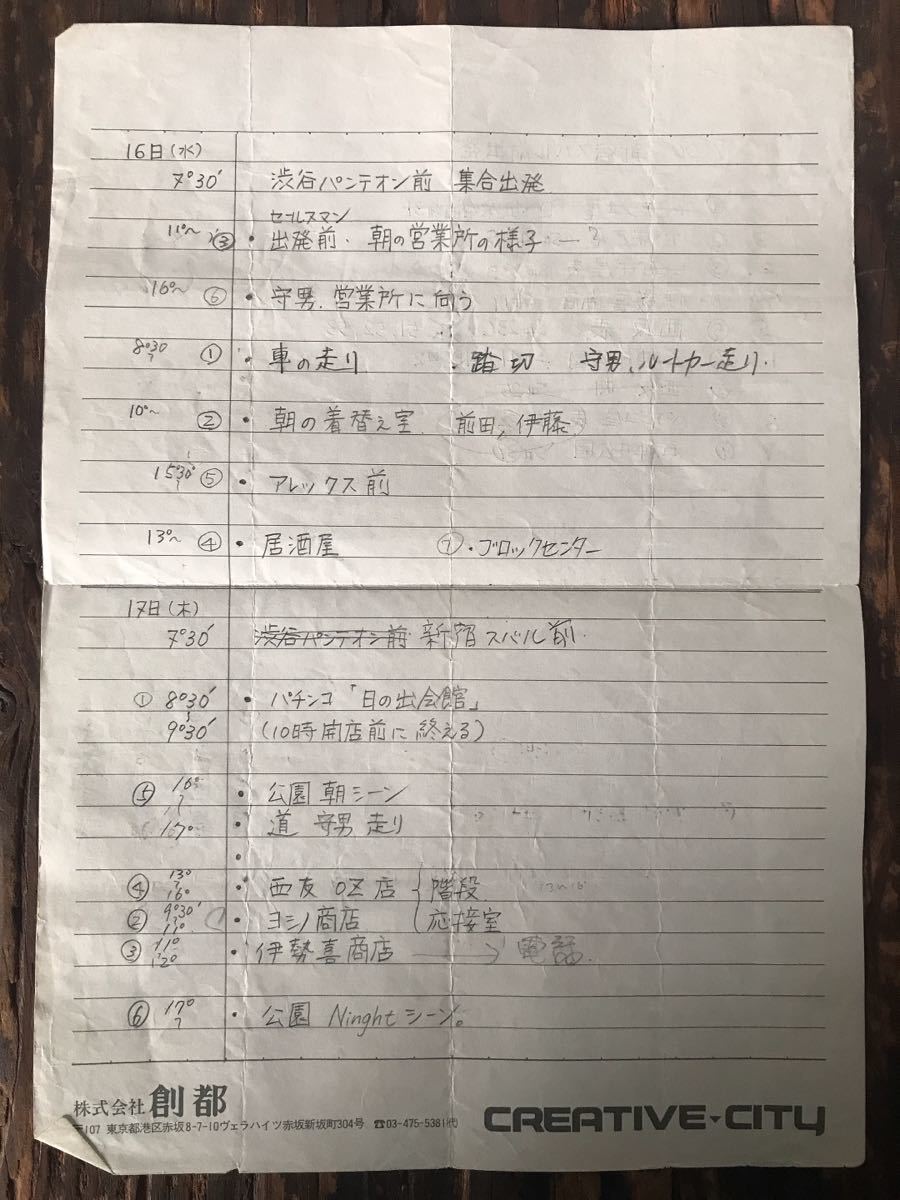 16日(水)
7°30′ 渋谷パンテオン前 集合出発
セールスマン
11°~ ③ ・出発前・朝の営業所の様子 ー?
16°~ ⑥ ・守男、営業所に向う
8°30~ ① ・車の走り ・踏切 守男、ルートカー走り・
10°~ ② ・朝の着替え室 前田、伊藤
15°30′~ ⑤ ・アレックス前
13°~ ④ ・居酒屋 ⑦・ブロックセンター
17日(木)
7°30′ 渋谷パンテオン前 新宿スバル前
① 8°30′ ・パチンコ「日の出会館」
~
9°30′ (10時開店前に終える)
⑤ 16° ・公園 朝シーン
~
17° ・道 守男 走り
・
④ 13°~16° ・西友 OZ店 階段
② 9°30′~11° ・ヨシノ商店 応接室
③ 11°~12° ・伊勢喜商店 → 電話
⑥ 17°~ ・公園 Ninghtシーン。
株式会社 創都
〒107 東京都港区赤坂8-7-10ヴェラハイツ赤坂新坂町304号 ☎03-475-5381(代)
CREATIVE CITY